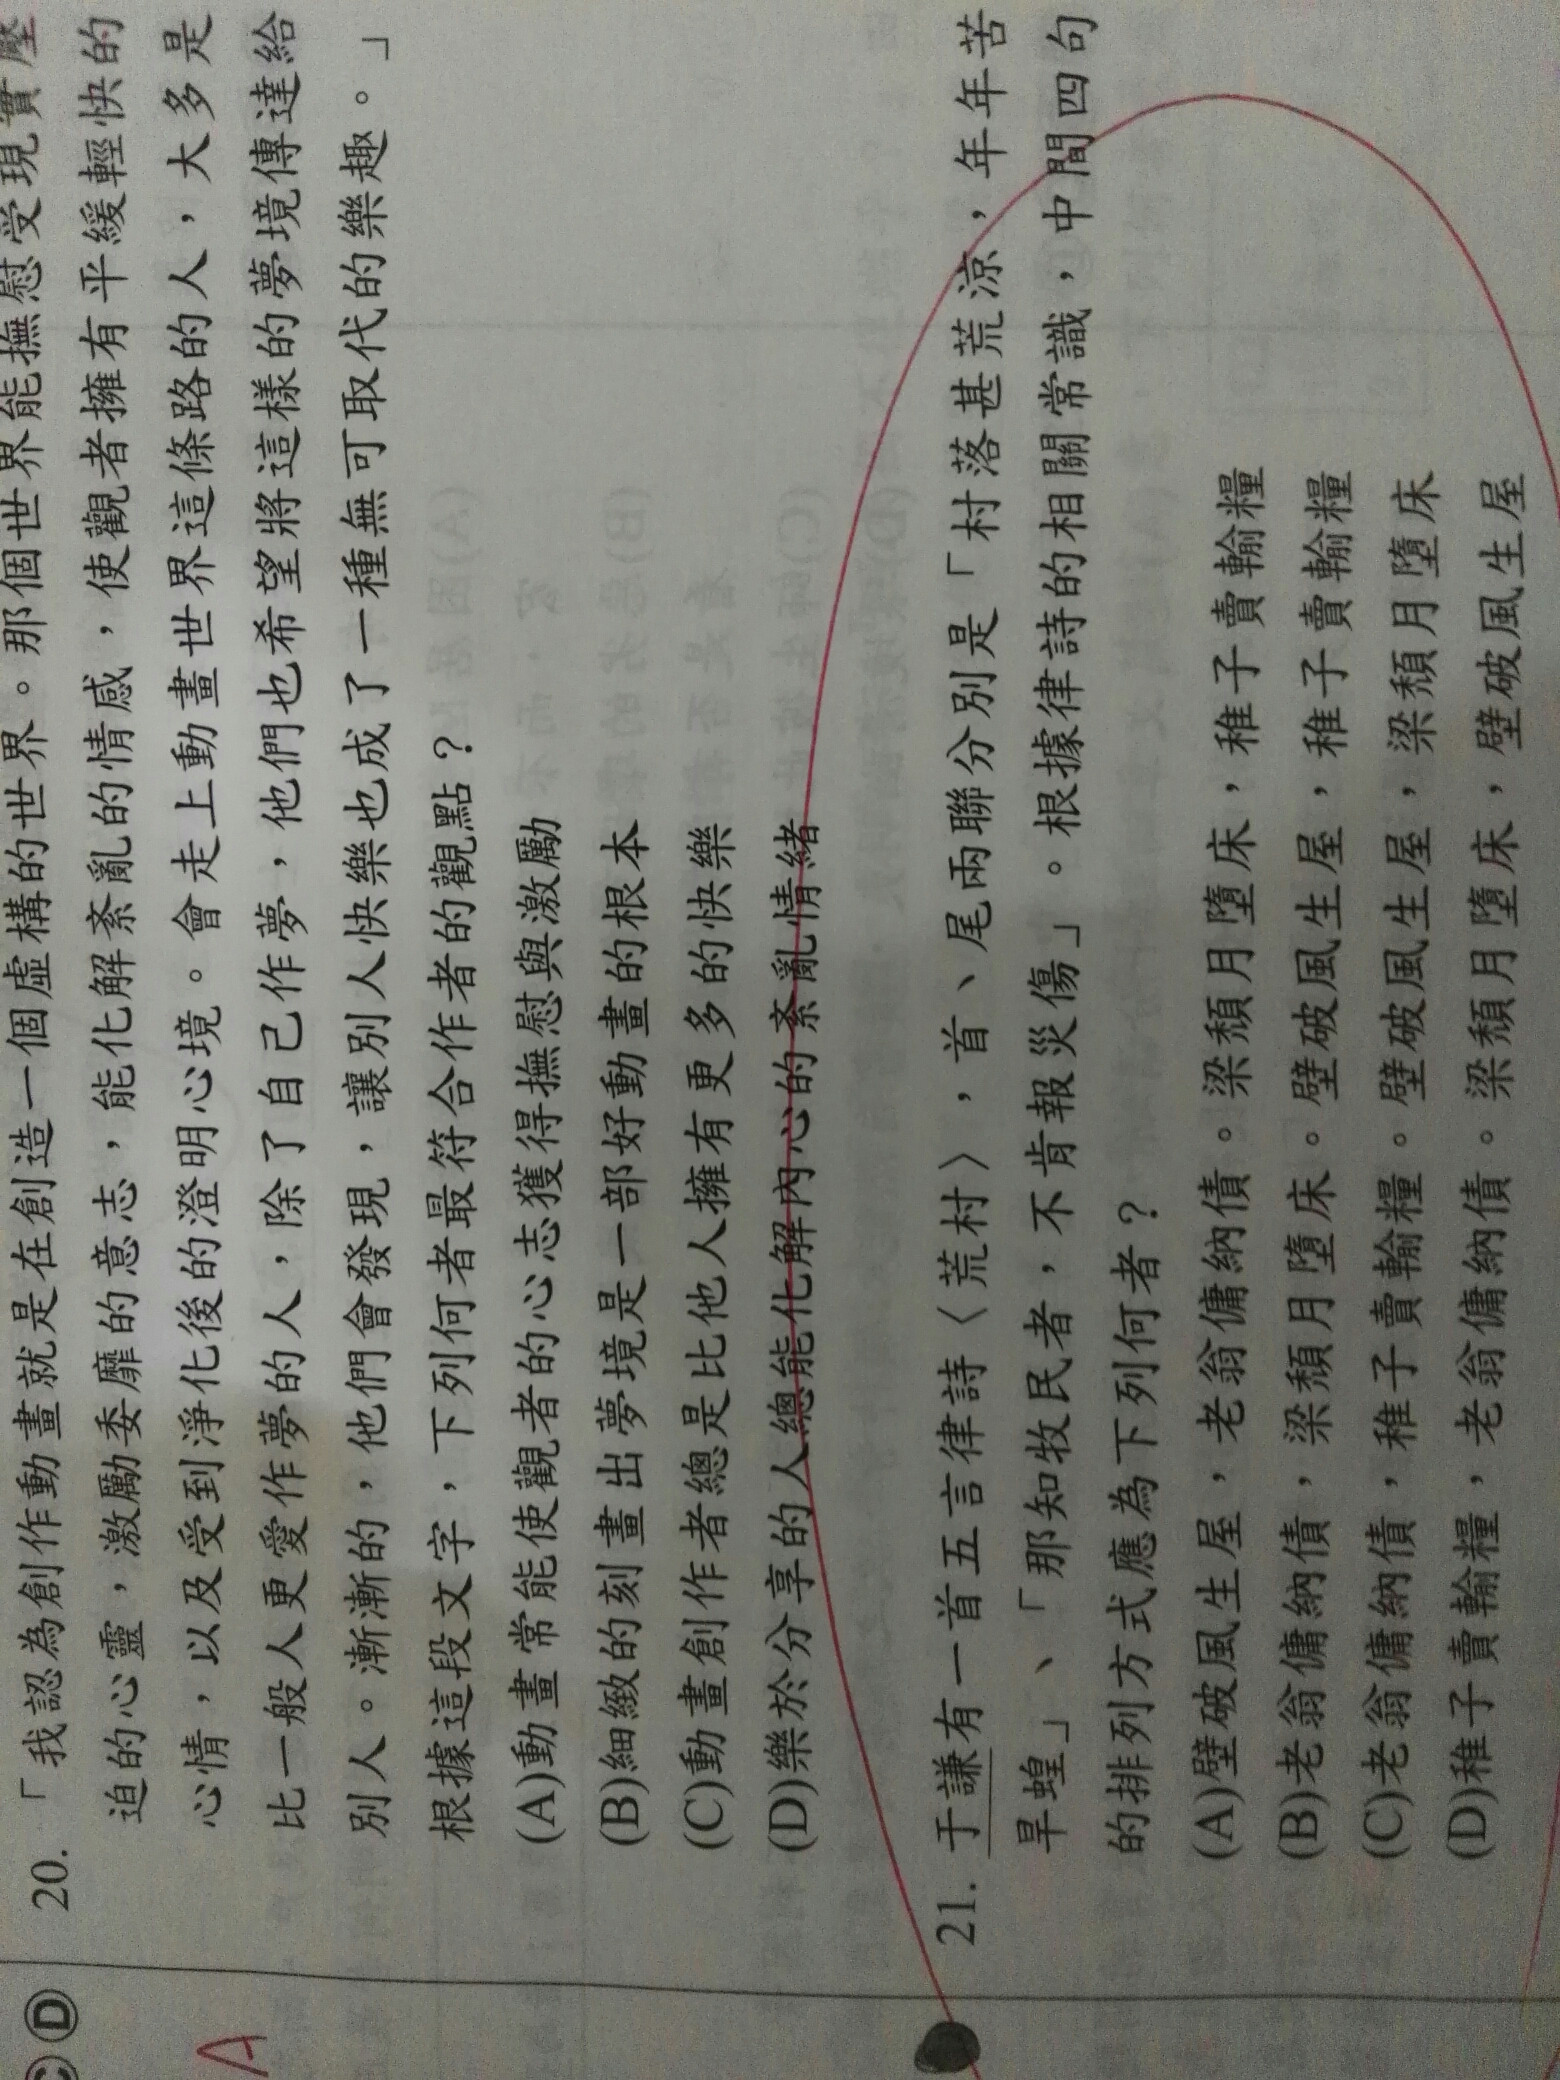 20. 「我認為創作動畫就是在創造一個虛構的世界。那個世界能撫慰受現實壓
迫的心靈，激勵委靡的意志，能化解紊亂的情感，使觀者擁有平緩輕快的
心情，以及受到淨化後的澄明心境。會走上動畫世界這條路的人，大多是
比一般人更愛作夢的人，除了自己作夢，他們也希望將這樣的夢境傳達給
別人。漸漸的，他們會發現，讓別人快樂也成了一種無可取代的樂趣。」
根據這段文字，下列何者最符合作者的觀點？
(A)動畫常能使觀者的心志獲得撫慰與激勵
(B)細緻的刻畫出夢境是一部好動畫的根本
(C)動畫創作者總是比他人擁有更多的快樂
(D)樂於分享的人總能化解內心的紊亂情緒
21. 于謙有一首五言律詩〈荒村〉，首、尾兩聯分別是「村落甚荒涼，年年苦
旱蝗」、「那知牧民者，不肯報災傷」。根據律詩的相關常識，中間四句
的排列方式應為下列何者？
(A)壁破風生屋，老翁傭納債。梁頹月墮床，稚子賣輸糧
(B)老翁傭納債，梁頹月墮床。壁破風生屋，稚子賣輸糧
(C)老翁傭納債，稚子賣輸糧。壁破風生屋，梁頹月墮床
(D)稚子賣輸糧，老翁傭納債。梁頹月墮床，壁破風生屋
C D
A